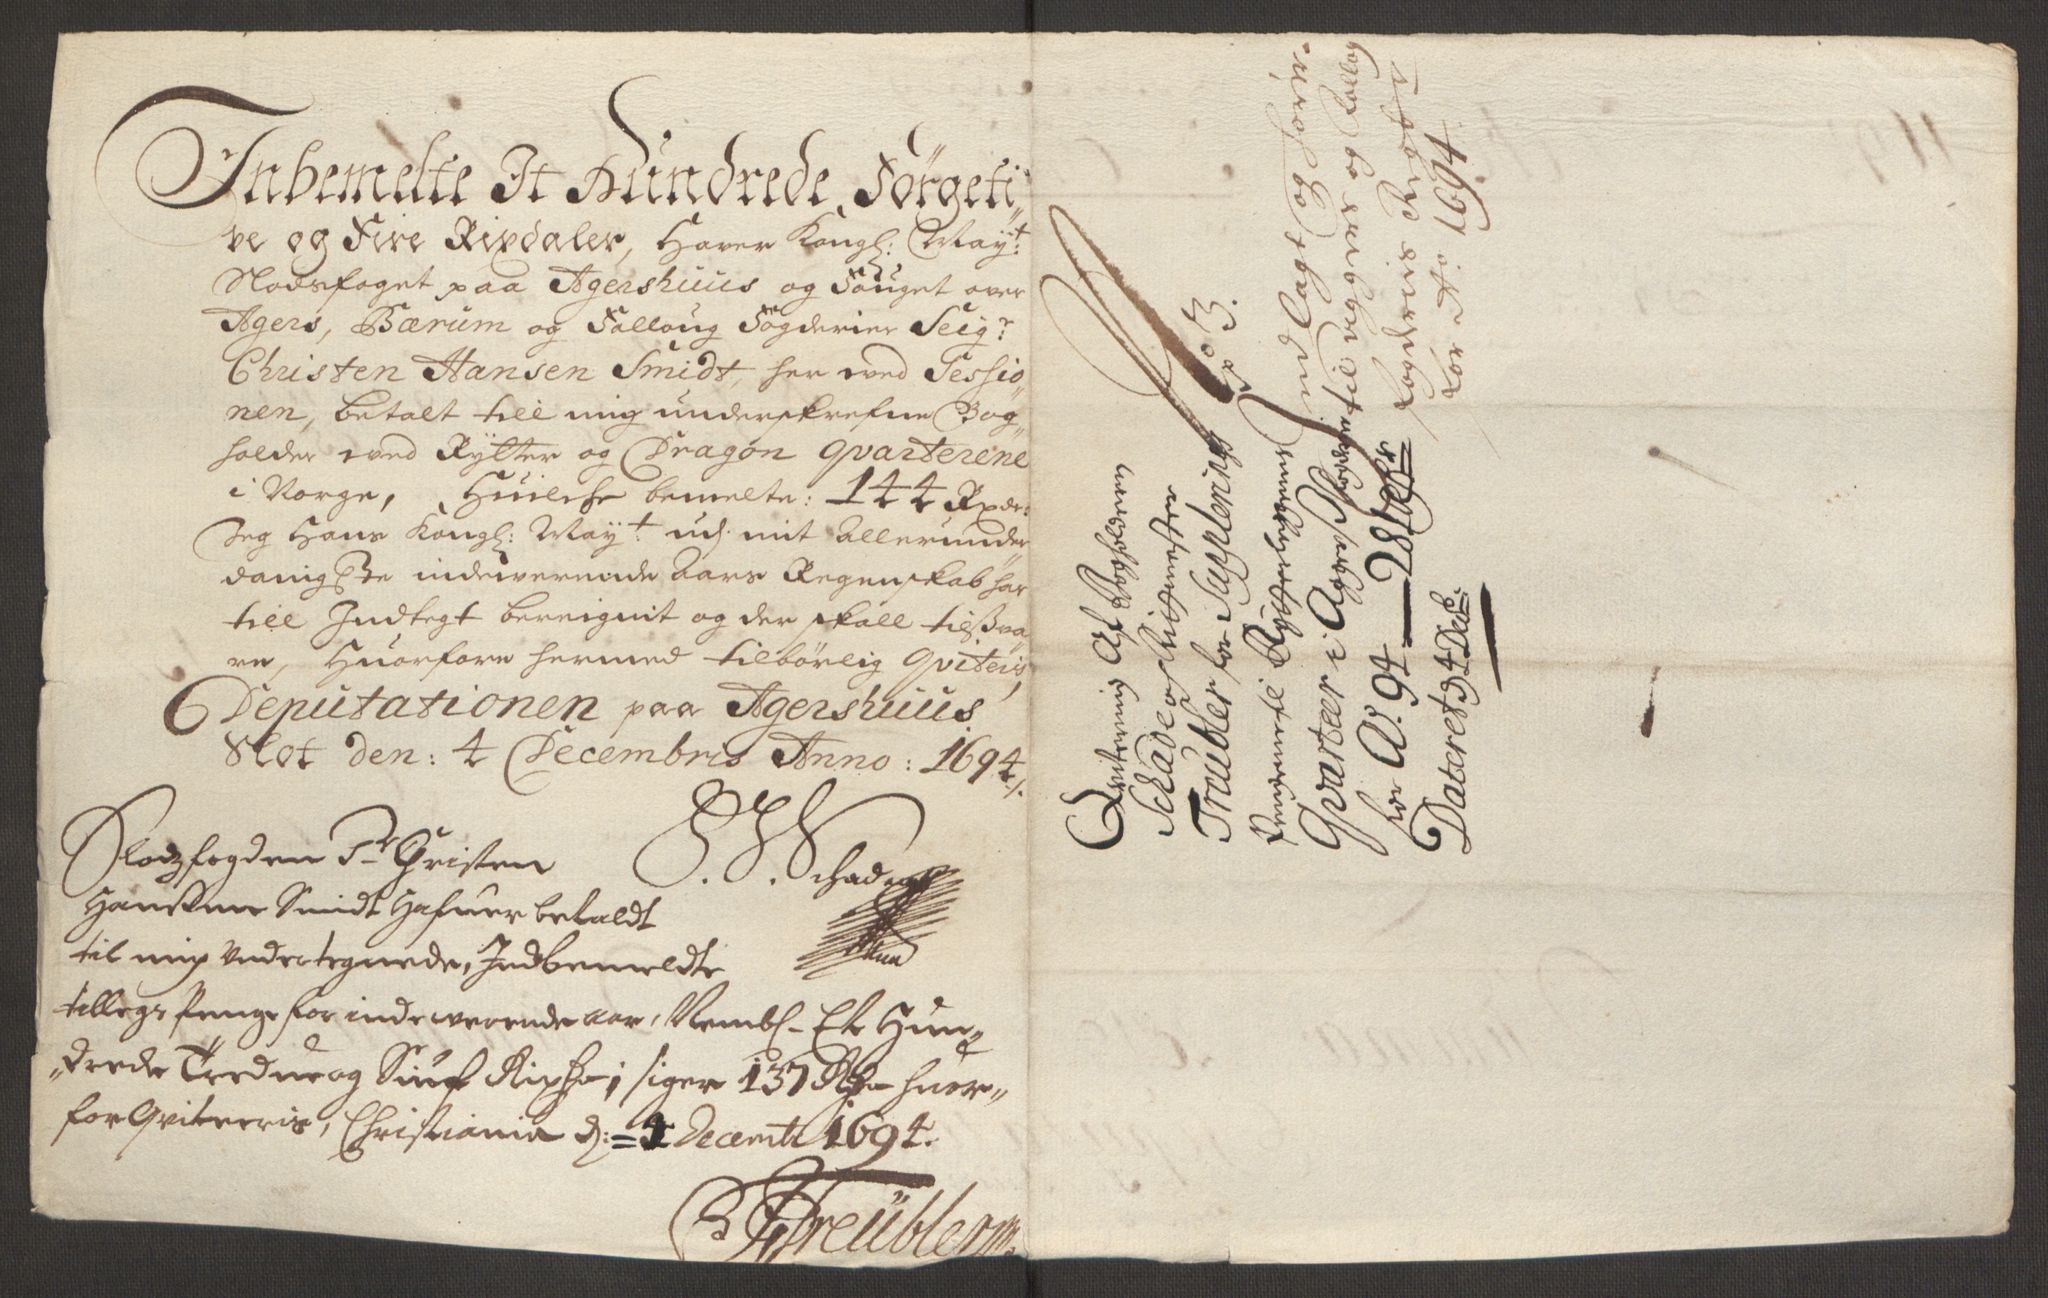 Inbemelte It Hundrede, Førgeti„
ve og Fire Rixdaler, Hafver Kongl: May.t
Slodsfoget paa Agershuus og Fouget over
Agers, Bærum og Folloug Fogderier Seig.r
Christen Hansen Smidt, her wed Sessio„
nen, betalt till mig underskrefne Bog„
holder wed Rytter og Dragon qvarterene
i Norge, Huilche bemelte: 144 Rxdr:
Jeg Hans Kongl: May.t udj mit allerunder„
danigste indewerende aars Regenskab har
till Indtegt bereignit og der skall tilsva„
re, Huorfore hermed tilbørlig qviteris,
Deputationen paa Agershuus
Slot den: 4 Decembris Anno: 1694
Slodzfogden Sr Christen
Hanssen Smidt Hafuer betaldt
til mig Vndertegnede, Indbemeldte
tillegs Penge for indewerende aar, Nembl- Et Hun„
„drede Tredue og Siuf Rixdr, siger 137 Rdr huor„
for Qviteeris, Christiania d: 4 Decembr 1694.
Schade
Treubler
Qvitering Af Bogholderen
Schade og Ritmester
Treubler for
Qvarteer i Aggers
for A.o 94 — 281
Dateret d 4 Decb.
No 3.
med Lagt og for
Fogderis Regensk
for A.o 1694